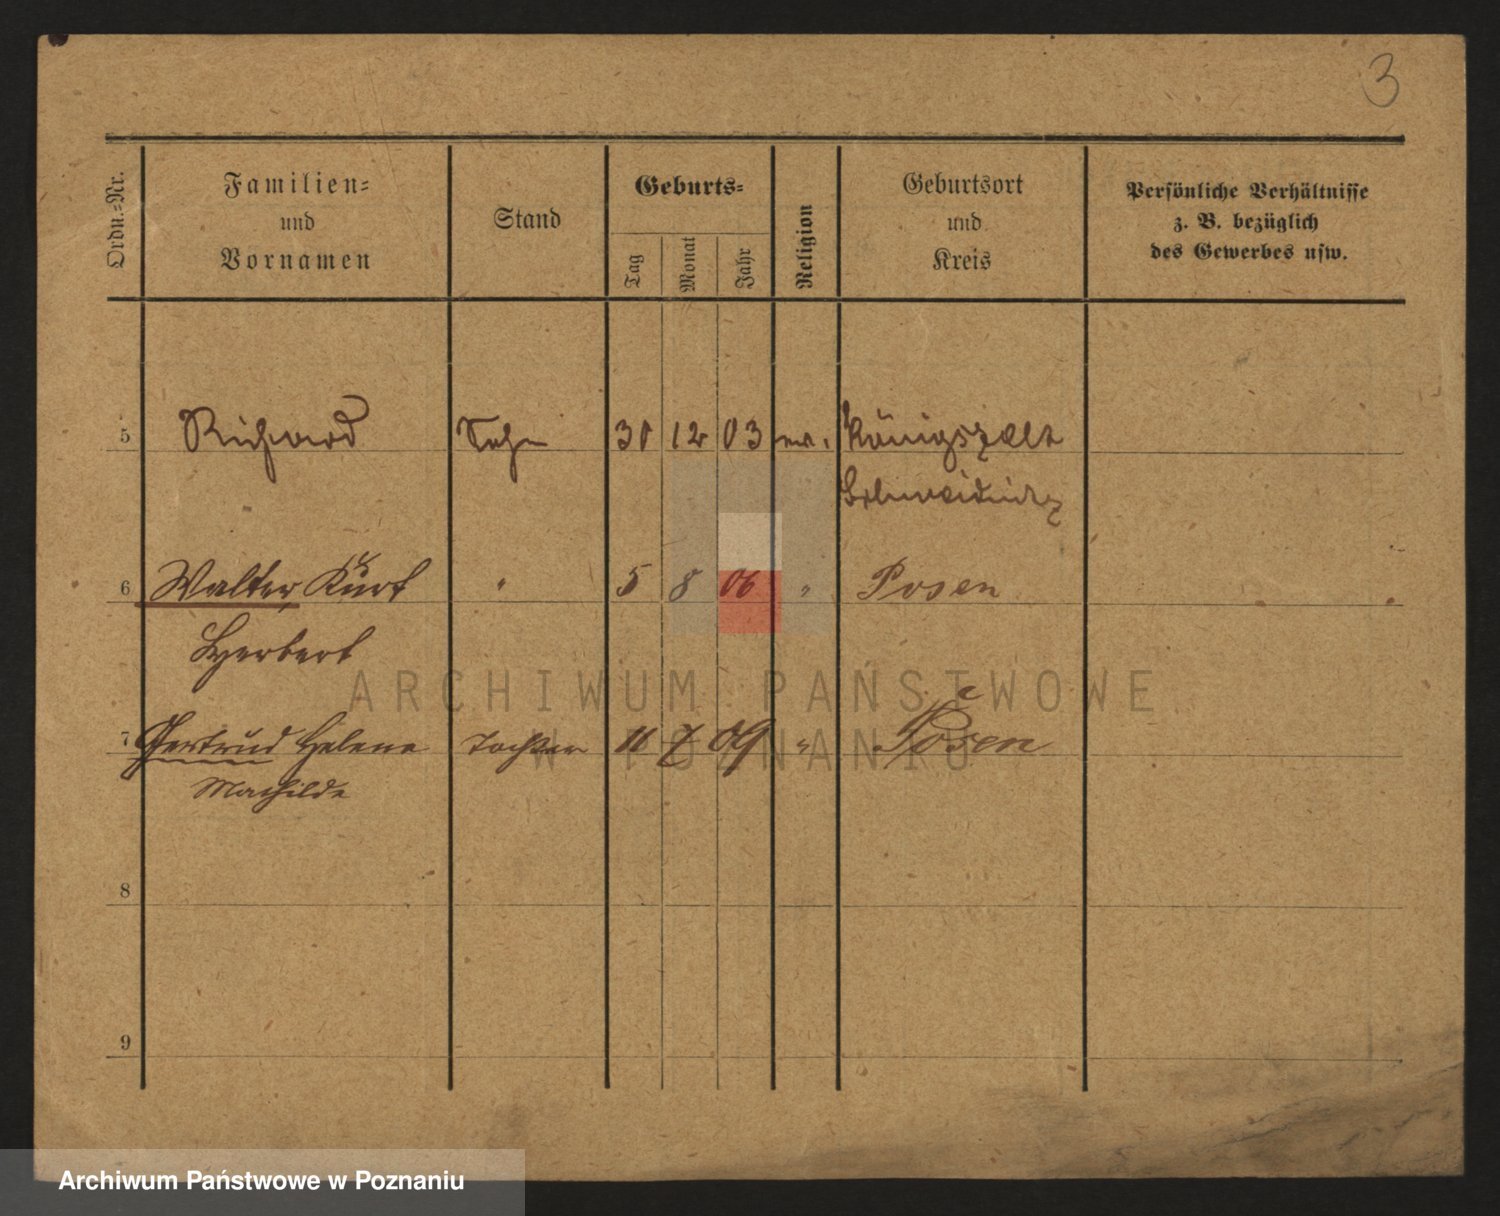 3
Ordn.-Nr.
Familien-
und
Vornamen
Stand
Geburts-
Tag
Monat
Jahr
Religion
Geburtsort
und
Kreis
Persönliche Verhältnisse
z. B. bezüglich
des Gewerbes usw.
5 Richard Sohn 31 12 03 ev. Königszelt
Schweidnitz
6 Walter, Kurt " 5 8 06 " Posen
Herbert
ARCHIWUM PAŃSTWOWE
7 Gertrud Helene Tochter 11 7 09 " Posen
W POZNANIU
Mathilde
8
9
Archiwum Państwowe w Poznaniu